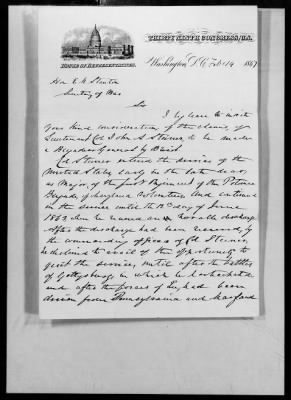 THIRTY NINTH CONGRESS, U.S.
HOUSE OF REPRESENTATIVES.
Washington, D.C. Feb 14 1867
Hon E M Stanton
Secretary of War
Sir
I beg leave to invite
your kind consideration of the claims of
Lieutenant Col John A Steiner to be made
a Brigadier General by Brevet
Col Steiner entered the service of the
United States early in the late war,
as Major of the first Regiment of the Potomac
Brigade of Maryland Volunteers and continued
in the service until the day of June
1863 when he received an honorable discharge
After the discharge had been received, by
the commanding officers of Col Steiner,
he declined to avail of the opportunity to
quit the service, until after the battle
of Gettysburg in which he participated
and after the forces of Lee had been
driven from Pennsylvania and Maryland